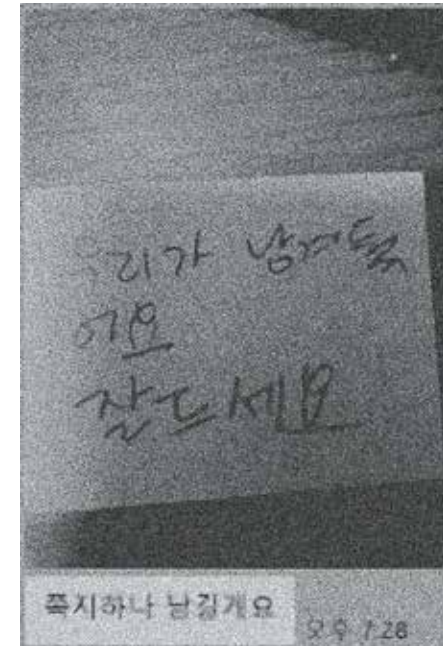 남겨뒀
어요
잘드세요
쪽지하나 남길게요
오후 7:28